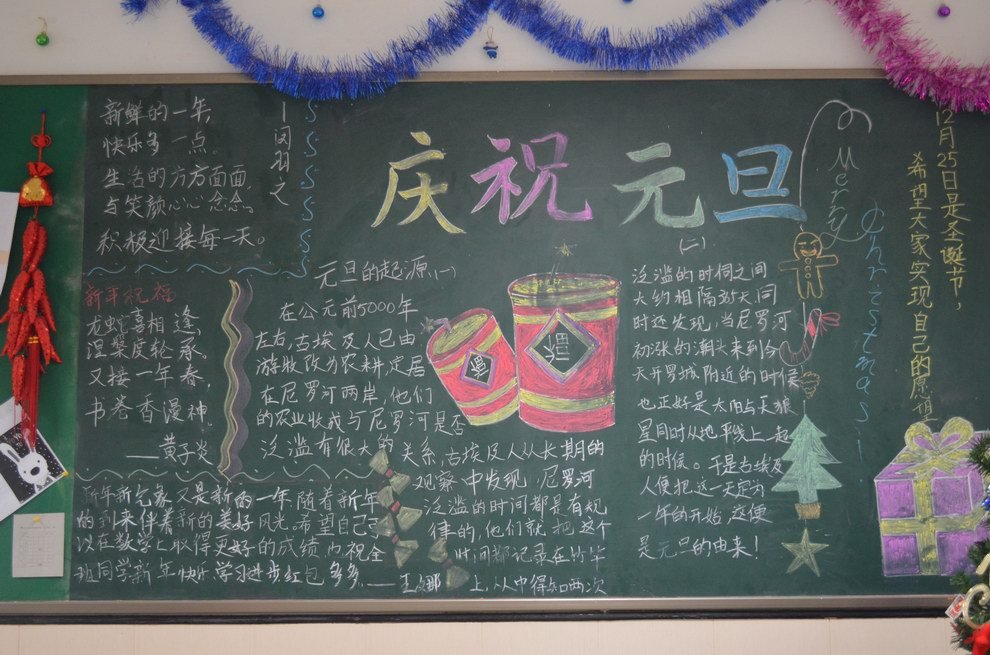 新鲜的一年,
快乐多一点。
生活的方方面面,
与笑颜心心念念。
积极迎接每一天。
庆祝元旦
Merry
Christmas!
12月25日是圣诞节,
希望大家实现自己的愿
新年祝福
龙蛇喜相逢,
涅槃度轮承。
又接一年春,
书卷香漫神
——黄子炎
元旦的起源(一)
在公元前5000年
左右,古埃及人已由
游牧改为农耕并定居
在尼罗河两岸,他们
的农业收成与尼罗河是否
泛滥有很大的关系,古埃及人从长期的
观察中发现,尼罗河
泛滥的时间都是有规
律的,他们就把这个
时间都记录在竹竿
上,从中得知两次
(二)
泛滥的时间之间
大约相隔365天同
时还发现,当尼罗河
初涨的潮头来到今
天开罗城附近的时候
也正好是太阳与天狼
星同时从地平线上一起
的时候。于是古埃及
人便把这一天定为
一年的开始,这便
是元旦的由来!
新年新气象又是新的一年随着新年
的到来伴着新的美好风光.希望自己
以在数学上取得更好的成绩内祝全
班同学新年快乐,学习进步红包多多.——王娜
福
福